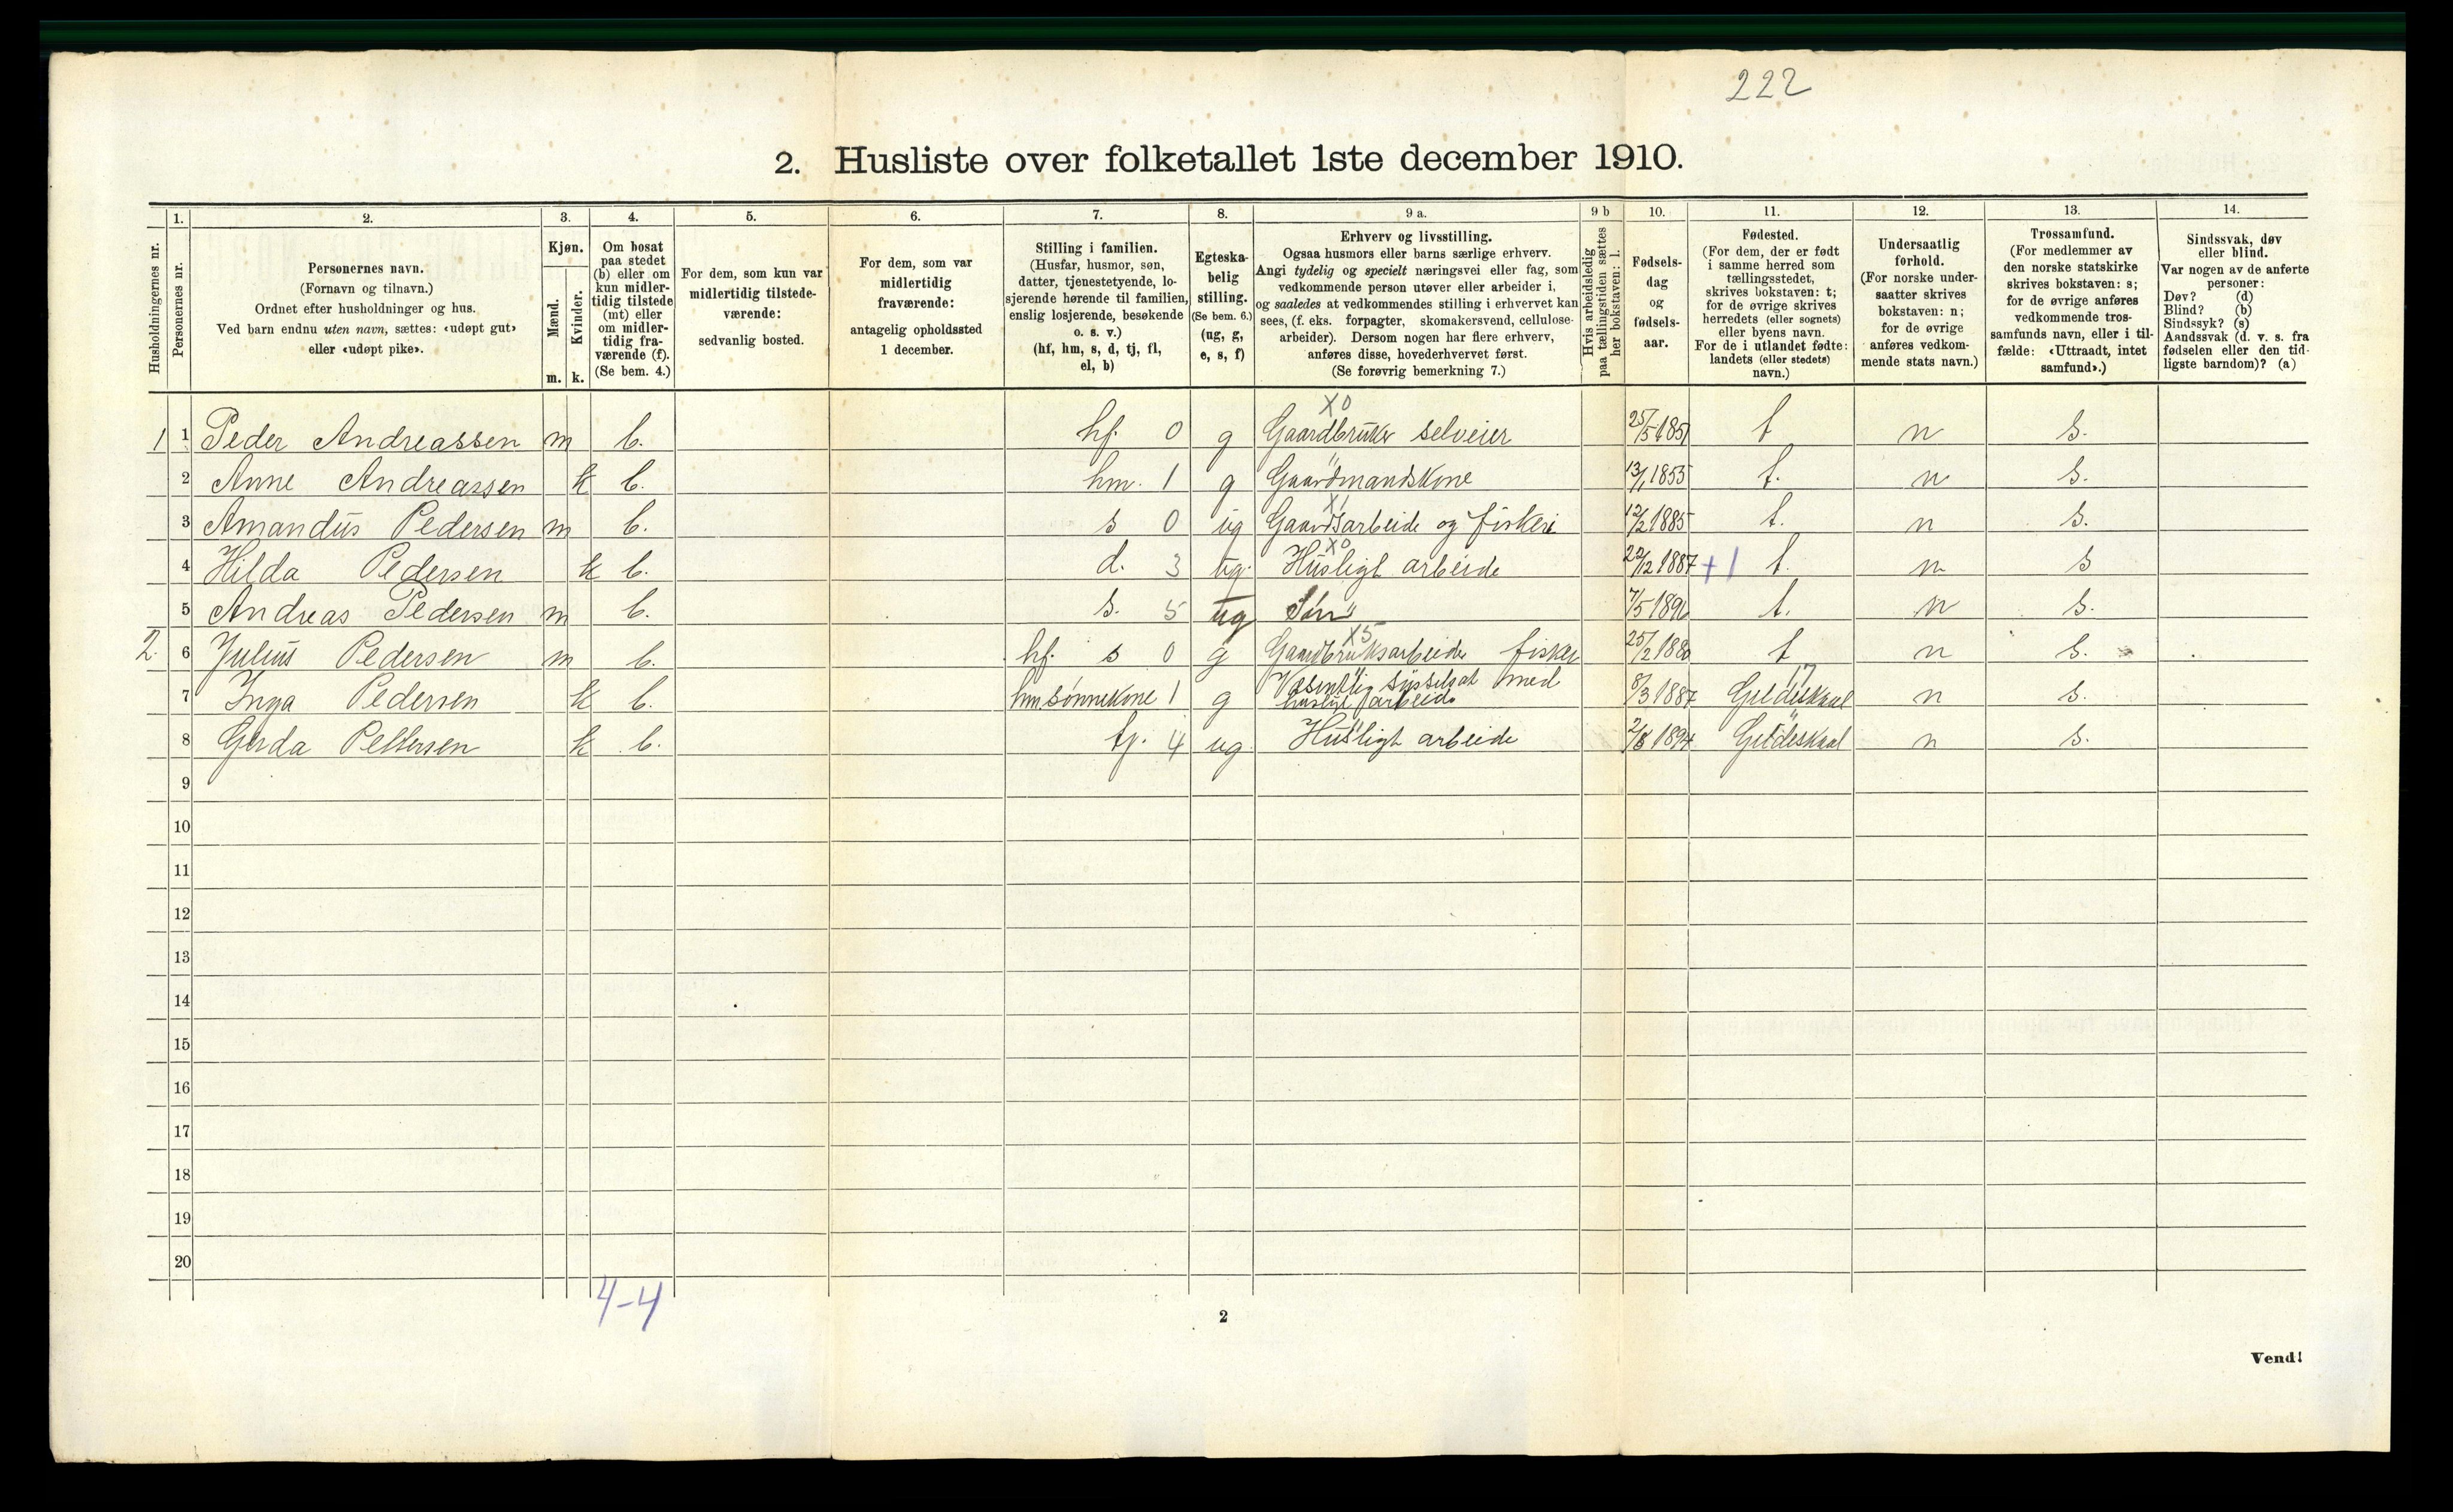 222
2. Husliste over folketallet 1ste december 1910.
1. 2. 3. 4. 5. 6. 7. 8. 9 a. 9 b 10. 11. 12. 13. 14.
Husholdningernes nr.
Personernes nr.
Personernes navn.
(Fornavn og tilnavn.)
Ordnet efter husholdninger og hus.
Ved barn endnu uten navn, sættes: «udøpt gut»
eller «udøpt pike».
Kjøn.
Mænd.
Kvinder.
m. k.
Om bosat
paa stedet
(b) eller om
kun midler-
tidig tilstede
(mt) eller
om midler-
tidig fra-
værende (f).
(Se bem. 4.)
For dem, som kun var
midlertidig tilstede-
værende:
sedvanlig bosted.
For dem, som var
midlertidig
fraværende:
antagelig opholdssted
1 december.
Stilling i familien.
(Husfar, husmor, søn,
datter, tjenestetyende, lo-
sjerende hørende til familien,
enslig losjerende, besøkende
o. s. v.)
(hf, hm, s, d, tj, fl,
el, b)
Egteska-
belig
stilling.
(Se bem. 6.)
(ug, g,
e, s, f)
Erhverv og livsstilling.
Ogsaa husmors eller barns særlige erhverv.
Angi tydelig og specielt næringsvei eller fag, som
vedkommende person utøver eller arbeider i,
og saaledes at vedkommendes stilling i erhvervet kan
sees, (f. eks. forpagter, skomakersvend, cellulose-
arbeider). Dersom nogen har flere erhverv,
anføres disse, hovederhvervet først.
(Se forøvrig bemerkning 7.)
Hvis arbeidsledig
paa tællingstiden sættes
her bokstaven: l.
Fødsels-
dag
og
fødsels-
aar.
Fødested.
(For dem, der er født
i samme herred som
tællingsstedet,
skrives bokstaven: t;
for de øvrige skrives
herredets (eller sognets)
eller byens navn.
For de i utlandet fødte:
landets (eller stedets)
navn.)
Undersaatlig
forhold.
(For norske under-
saatter skrives
bokstaven: n;
for de øvrige
anføres vedkom-
mende stats navn.)
Trossamfund.
(For medlemmer av
den norske statskirke
skrives bokstaven: s;
for de øvrige anføres
vedkommende tros-
samfunds navn, eller i til-
fælde: «Uttraadt, intet
samfund».)
Sindssvak, døv
eller blind.
Var nogen av de anførte
personer:
Døv? (d)
Blind? (b)
Sindssyk? (s)
Aandssvak (d. v. s. fra
fødselen eller den tid-
ligste barndom)? (a)
X0
1 1 Peder Andreassen m b. hf. 0 g Gaardbruker selveier 25/5 1851 t n s.
2 Anne Andreassen k b. hm. 1 g Gaardmandskone 13/1 1855 t. n s.
X1
3 Amandus Pedersen m b. s 0 ug Gaardsarbeide og fiskeri 12/2 1885 t. n s.
X0
4 Hilda Pedersen k b. d. 3 ug. Husligt arbeide 22/12 1887 +1 t. n s
5 Andreas Pedersen m b. s. 5 ug Søn 7/5 1896 t. n s.
X5
2. 6 Julius Pedersen m b. hf. s 0 g Gaardbruksarbeide fisker 25/2 1880 t n s.
17
7 Inga Pedersen k b. hm. sønnekone 1 g Væsentlig sysselsat med
husligt arbeide 8/3 1887 Gildeskaal n s.
8 Gerda Pettersen k b. tj. 4 ug Husligt arbeide 2/8 1894 Gildeskaal n s.
9
10
11
12
13
14
15
16
17
18
19
20
4-4
2
Vend!